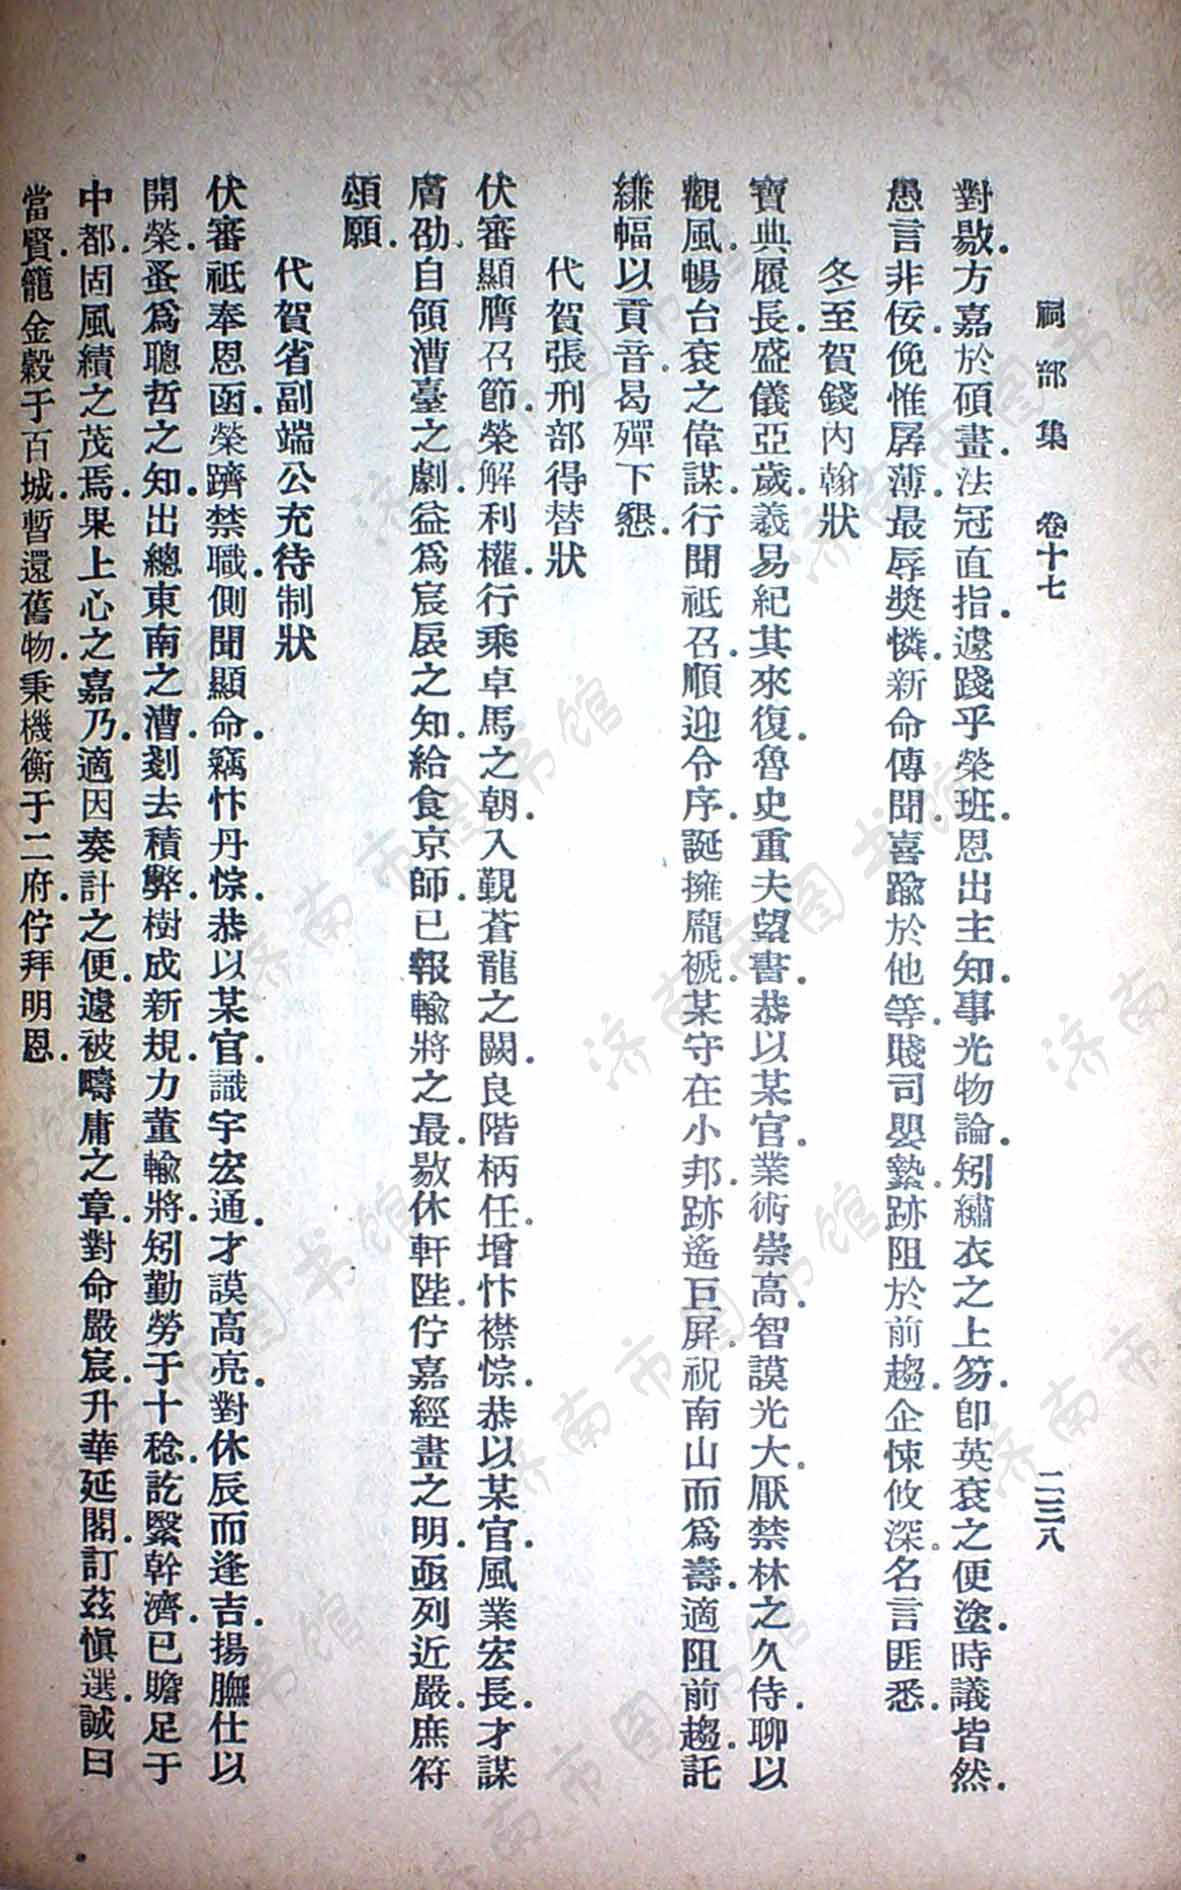 祠部集 卷十七 二三八
對敭.方嘉於碩畫.法冠直指.遽踐乎榮班.恩出主知.事光物論.矧繡衣之上笏.卽英袞之便塗.時議皆然.
愚言非佞.俛惟孱薄.最辱奬憐.新命傳聞.喜踰於他等.賤司嬰縶.跡阻於前趨.企悚攸深.名言匪悉.
冬至賀錢內翰狀
寶典履長.盛儀亞歲.羲易紀其來復.魯史重夫望書.恭以某官.業術崇高.智謨光大.厭禁林之久侍.聊以
觀風.暢台袞之偉謀.行聞祗召.順迎令序.誕擁龐禠.某守在小邦.跡遙巨屏.祝南山而爲壽.適阻前趨.託
縑幅以貢音.曷殫下懇.
代賀張刑部得替狀
伏審顯膺召節.榮解利權.行乘卓馬之朝.入覲蒼龍之闕.良階柄任.增忭襟悰.恭以某官.風業宏長.才謀
膚劭.自領漕臺之劇.益爲宸扆之知.給食京師.已報輸將之最.敭休軒陛.佇嘉經畫之明.亟列近嚴.庶符
頌願.
代賀省副端公充待制狀
伏審祗奉恩函.榮躋禁職.側聞顯命.竊忭丹悰.恭以某官.識宇宏通.才謨高亮.對休辰而逢吉.揚膴仕以
開榮.蚤爲聰哲之知.出總東南之漕.剗去積弊.樹成新規.力董輸將.矧勤勞于十稔.訖繄幹濟.已贍足于
中都.固風績之茂焉.果上心之嘉乃.適因奏計之便.遽被疇庸之章.對命嚴宸.升華延閣.訂茲愼選.誠曰
當賢.籠金穀于百城.暫還舊物.秉機衡于二府.佇拜明恩.
济南市图书馆